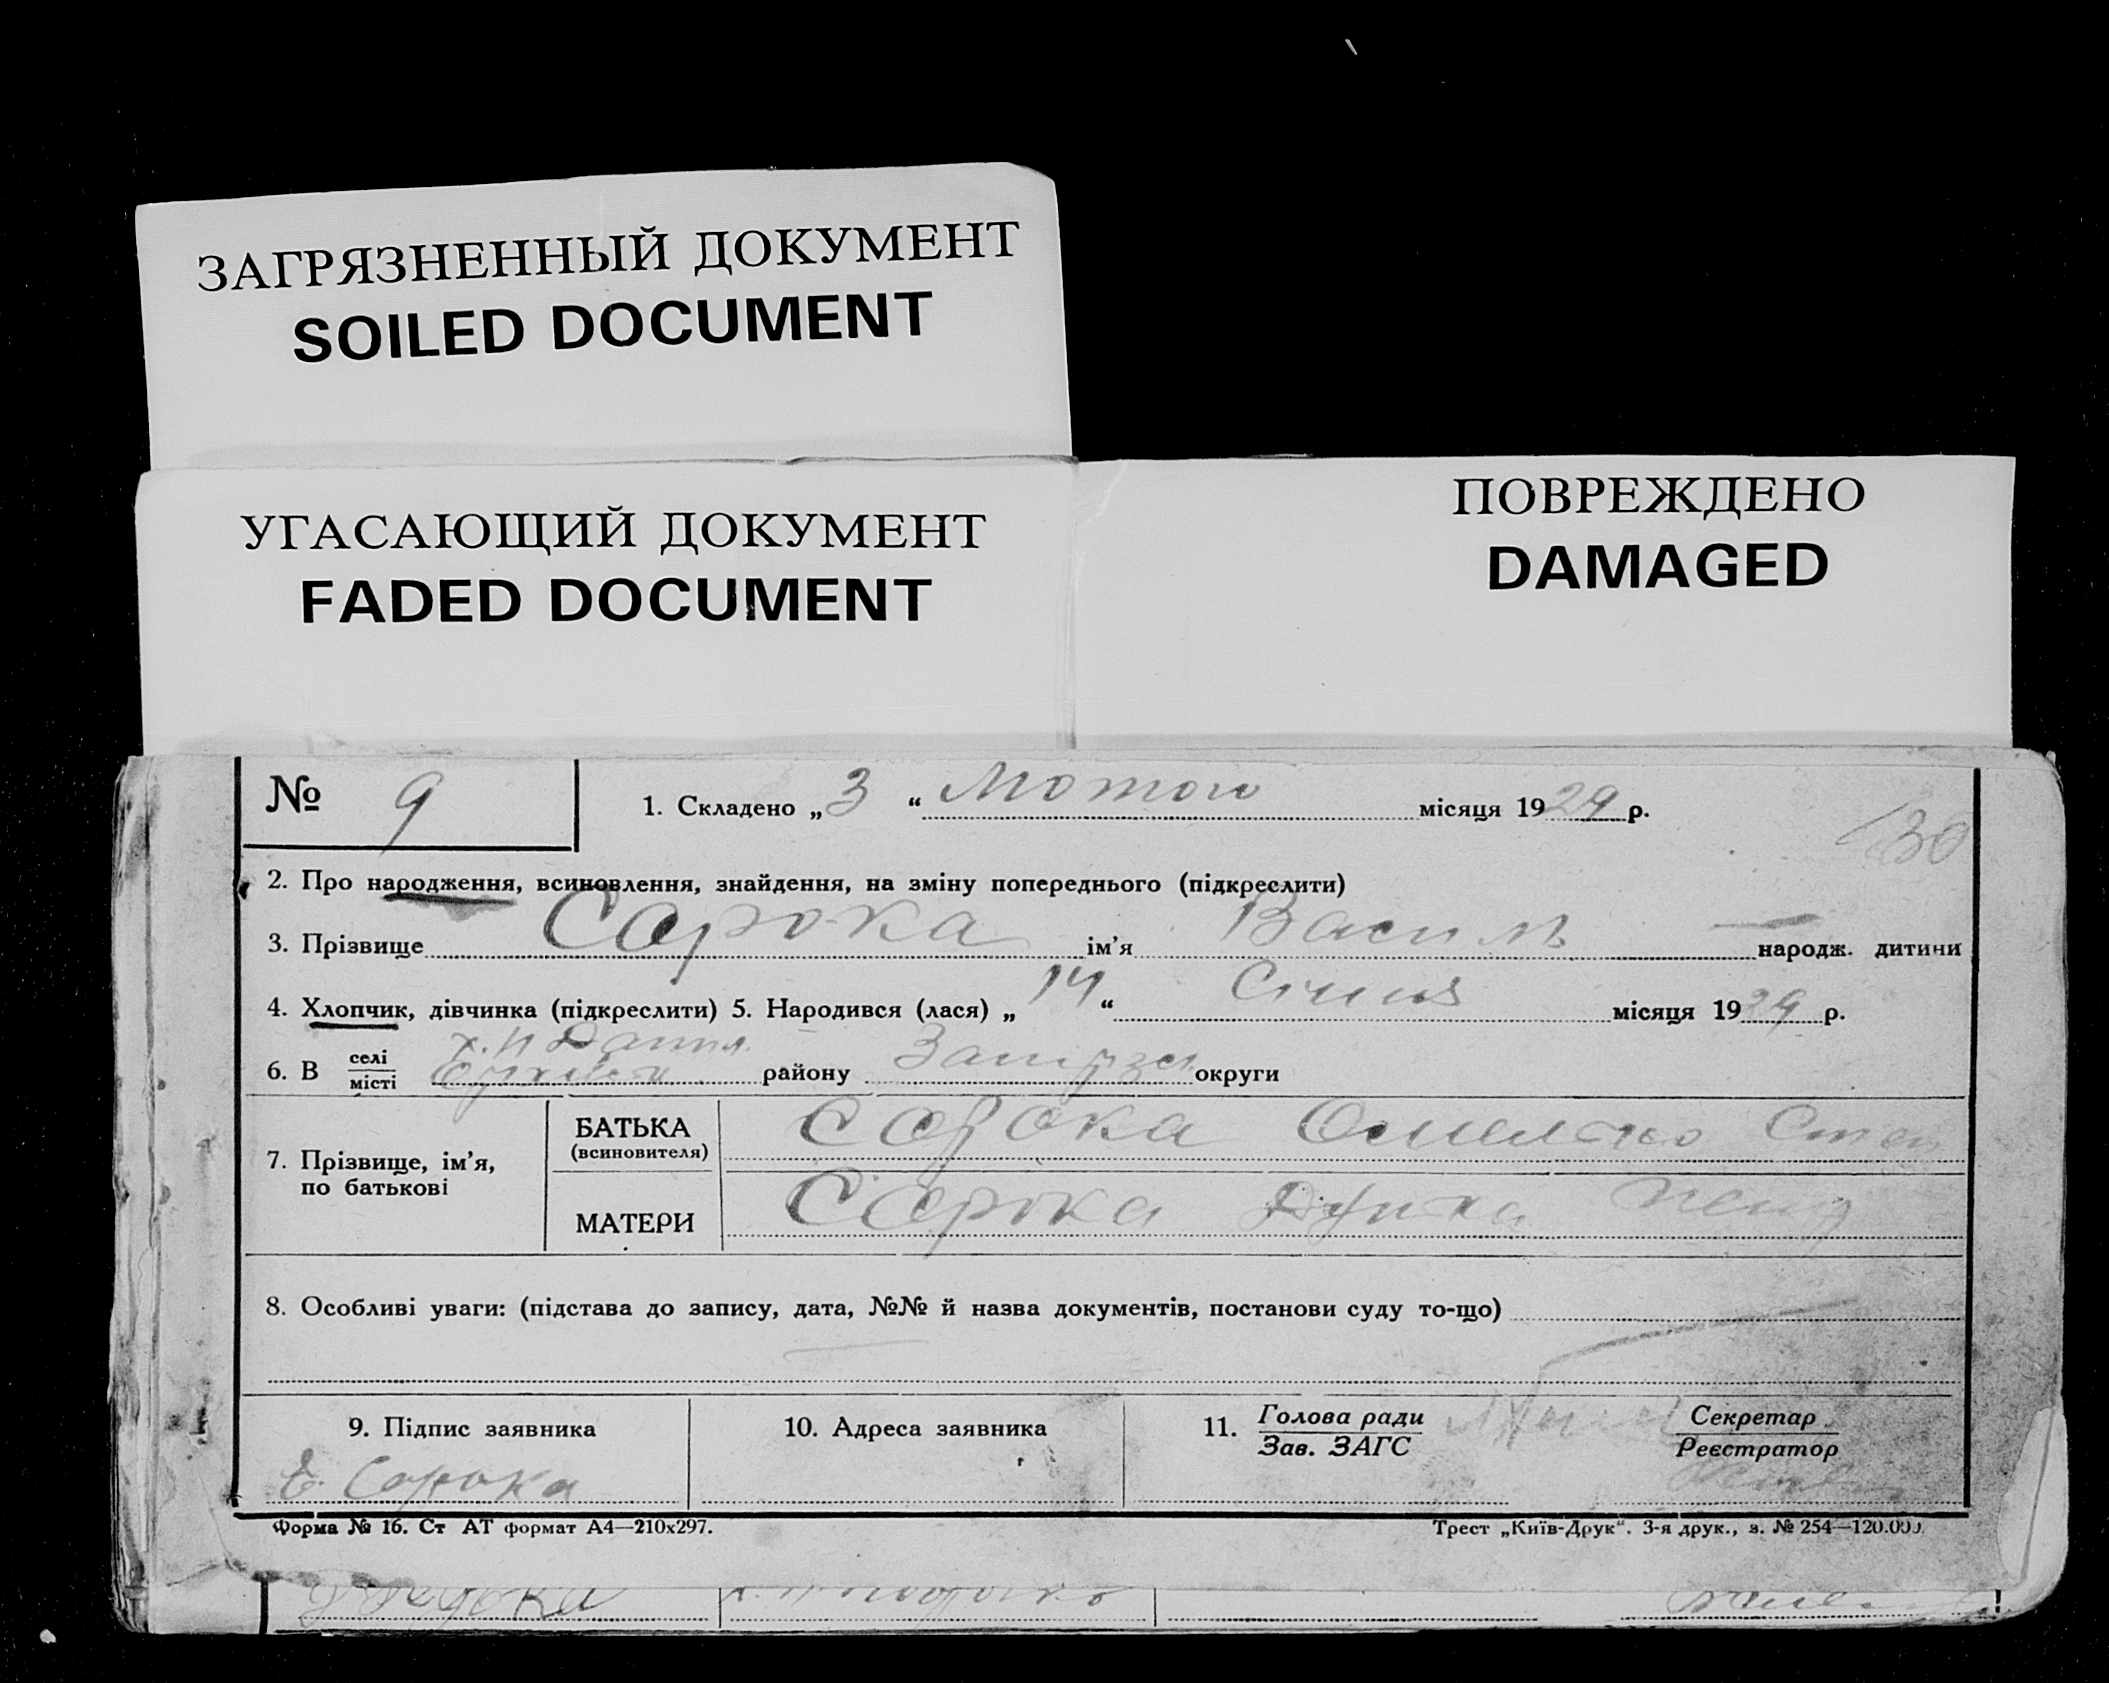 ЗАГРЯЗНЕННЫЙ ДОКУМЕНТ
SOILED DOCUMENT
УГАСАЮЩИЙ ДОКУМЕНТ
FADED DOCUMENT
ПОВРЕЖДЕНО
DAMAGED
№ 9
1. Складено „ 3 “ Лютого місяця 1929 р.
130
2. Про народження, всиновлення, знайдення, на зміну попереднього (підкреслити)
3. Прізвище Сорока ім’я Василь народж. дитини
4. Хлопчик, дівчинка (підкреслити) 5. Народився (лася) „ 14 “ Січня місяця 1929 р.
6. В селі
місті району округи
7. Прізвище, ім’я,
по батькові
БАТЬКА Сорока Омелько Степ
(всиновителя)
МАТЕРИ Сорока
8. Особливі уваги: (підстава до запису, дата, №№ й назва документів, постанови суду то-що)
9. Підпис заявника
Є. Сорока
10. Адреса заявника
11. Голова ради
Зав. ЗАГС
Секретар
Реєстратор
Форма № 16. Ст АТ формат А4—210х297.
Трест „Київ-Друк“. 3-я друк., з. № 254—120.000